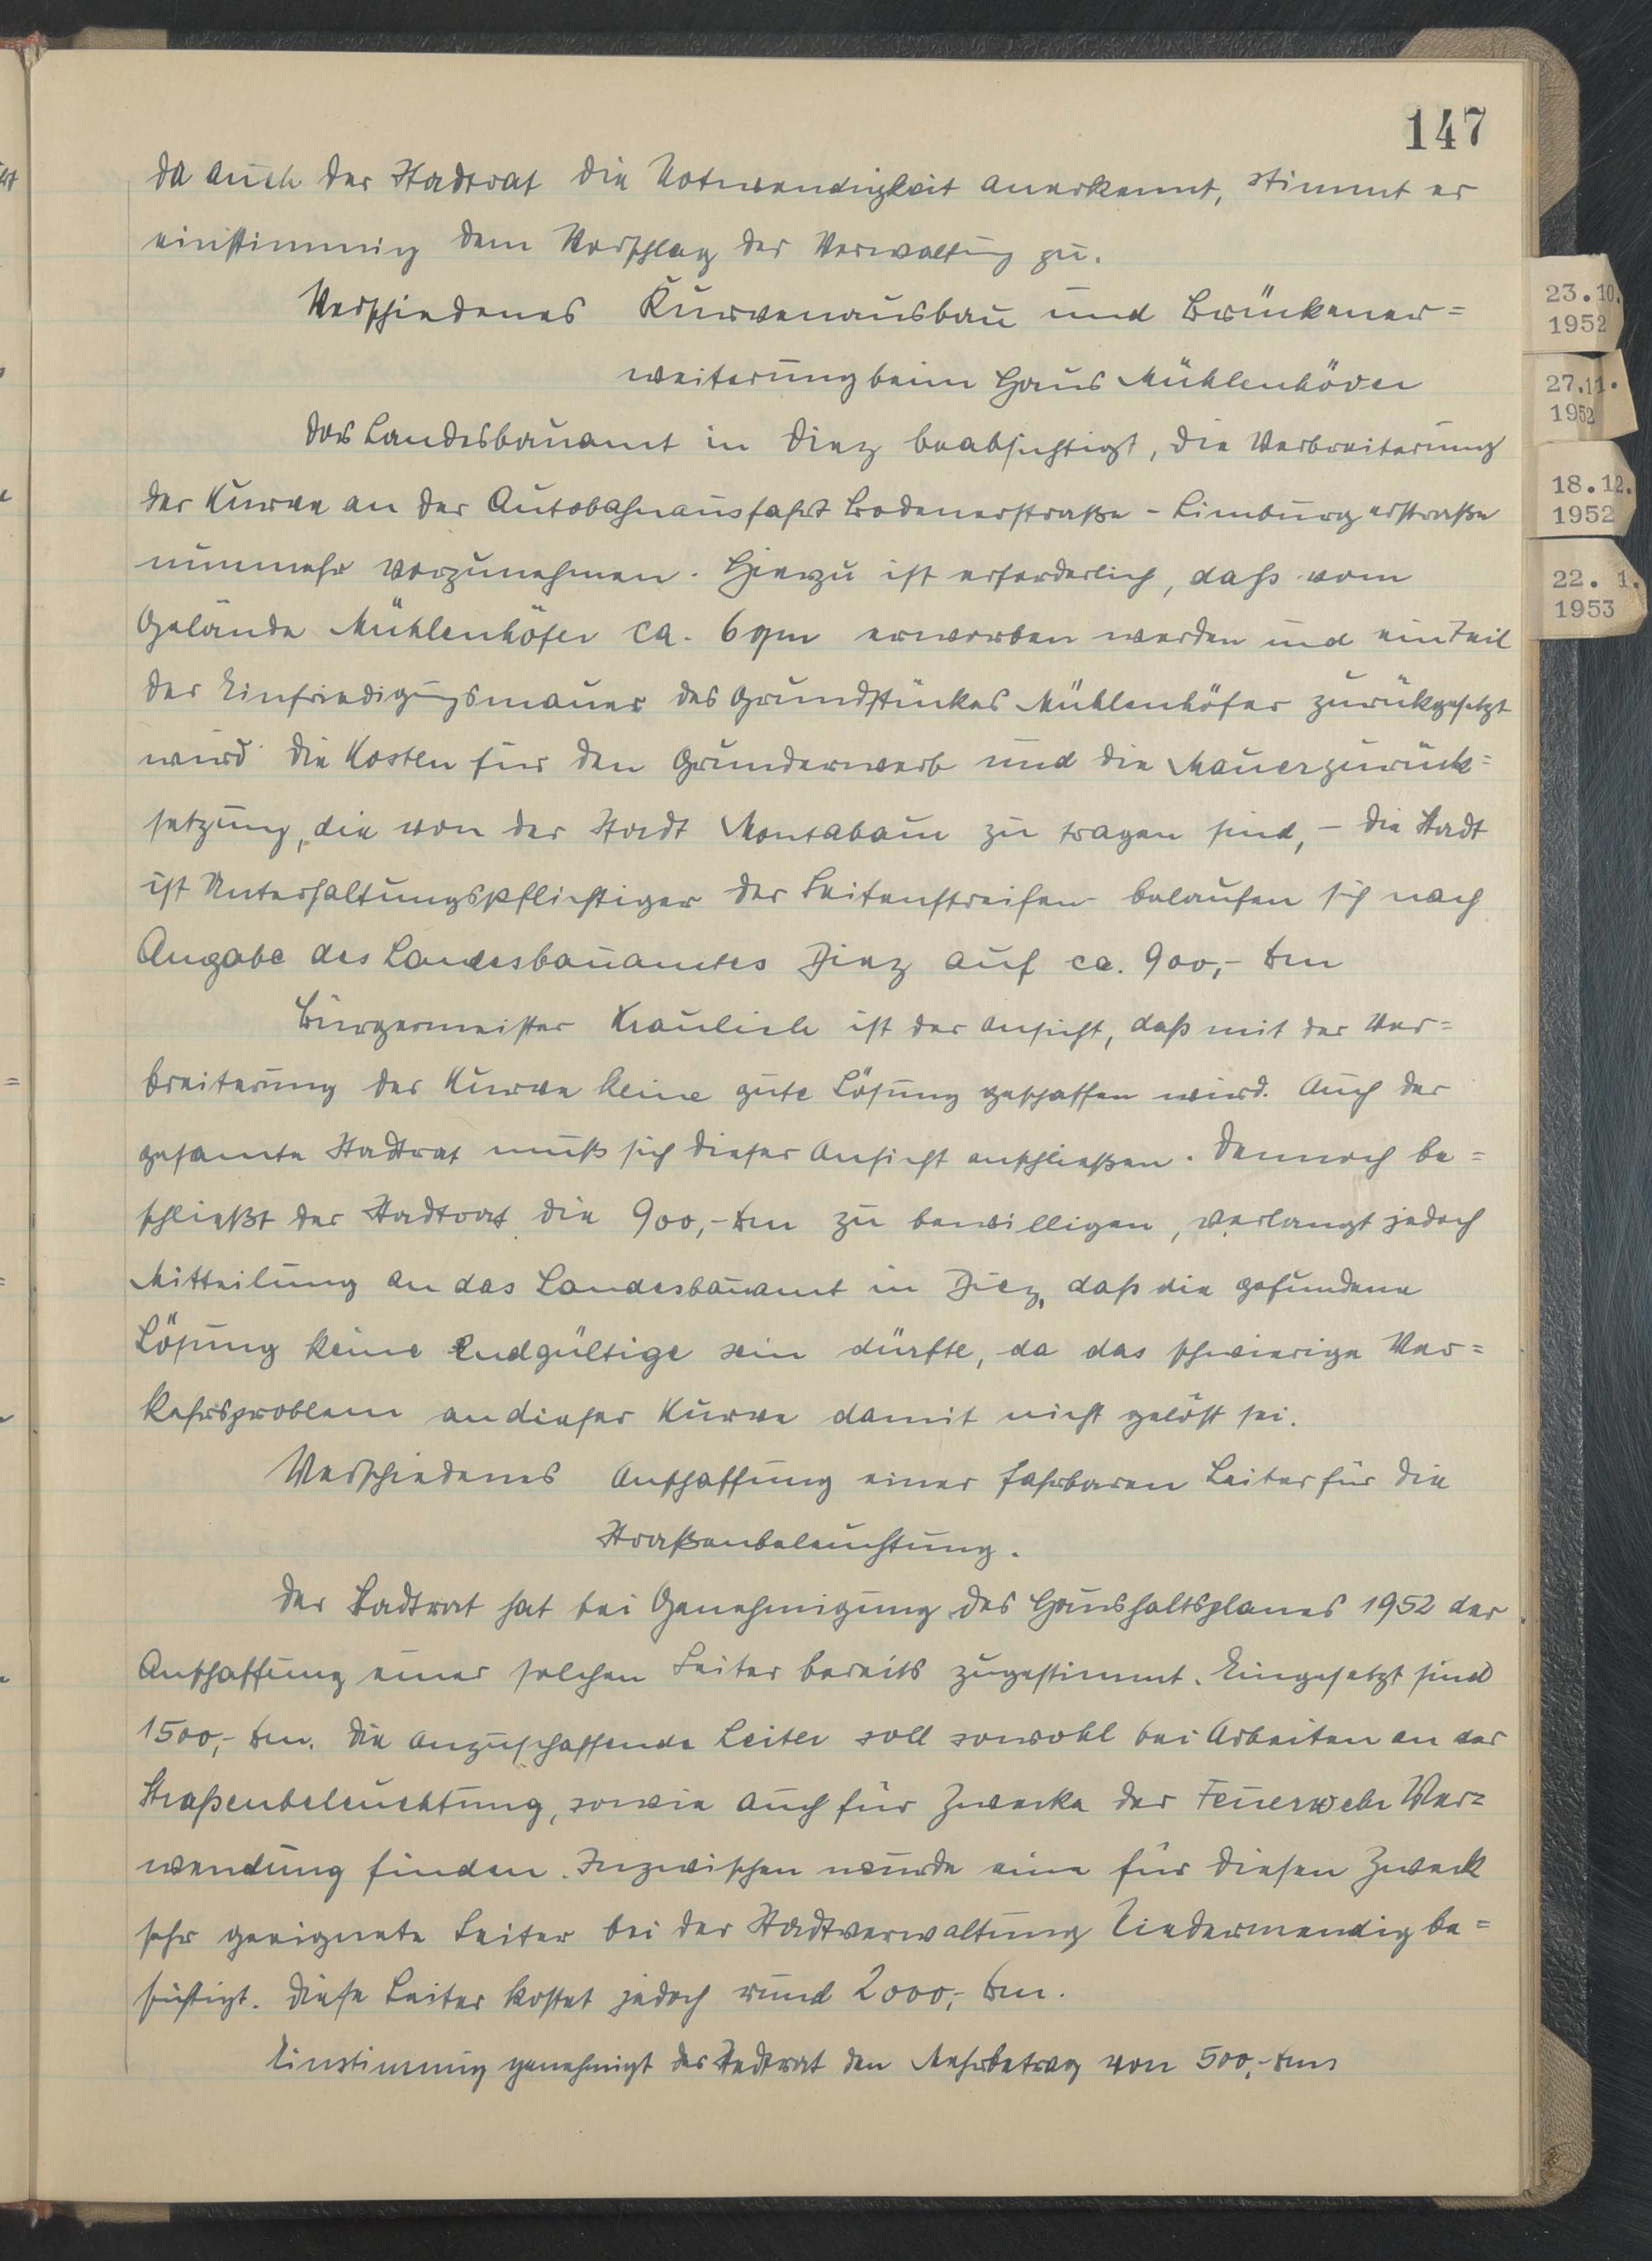 147
da auch der Stadtrat die Notwendigkeit anerkennt, stimmt er
einstimmig dem Vorschlag der Verwaltung zu.
Verschiedenes Kurvenausbau und Brückener=
weiterung beim Haus Mühlenhöver
Das Landesbauamt in Diez beabsichtigt, die Verbreiterung
der Kurve an der Autobahnausfahrt Bodenerstraße - Limburgerstraße
nunmehr vorzunehmen. Hierzu ist erforderlich, daß vom
Gelände Mühlenhöfer ca. 6 qm erworben werden und ein Teil
der Einfriedigungsmauer des Grundstückes Mühlenhöfer zurückgesetzt
wird die Kosten für den Grunderwerb und die Mauerzurück=
setzung, die von der Stadt Montabaur zu tragen sind, - die Stadt
ist Unterhaltungspflichtiger der Seitenstreifen - belaufen sich nach
Angabe des Landesbauamtes Diez auf ca. 900,- Dm
Bürgermeister Kraulich ist der Ansicht, daß mit der Ver=
breiterung der Kurve keine gute Lösung geschaffen wird. Auch der
gesamte Stadtrat muß sich dieser Ansicht anschließen. Dennoch be=
schließt der Stadtrat die 900,- Dm zu bewilligen, verlangt jedoch
Mitteilung an das Landesbauamt in Diez, daß die gefundene
Lösung keine Endgültige sein dürfte, da das schwierige Ver=
kehrsproblem an dieser Kurve damit nicht gelöst sei.
Verschiedenes Anschaffung einer fahrbaren Leiter für die
Straßenbeleuchtung.
Der Stadtrat hat bei Genehmigung des Haushaltsplanes 1952 der
Anschaffung einer solchen Leiter bereits zugestimmt. Eingesetzt sind
1500,- Dm. Die anzuschaffende Leiter soll sowohl bei Arbeiten an der
Straßenbeleuchtung, sowie auch für Zwecke der Feuerwehr Ver=
wendung finden. Inzwischen wurde eine für diesen Zweck
sehr geeignete Leiter bei der Stadtverwaltung Niedermendig be=
sichtigt. Diese Leiter kostet jedoch rund 2000,- Dm.
Einstimmig genehmigt der Stadtrat den Mehrbetrag von 500,- Dm
23.10.
1952
27.11.
1952
18.12.
1952
22. 1.
1953